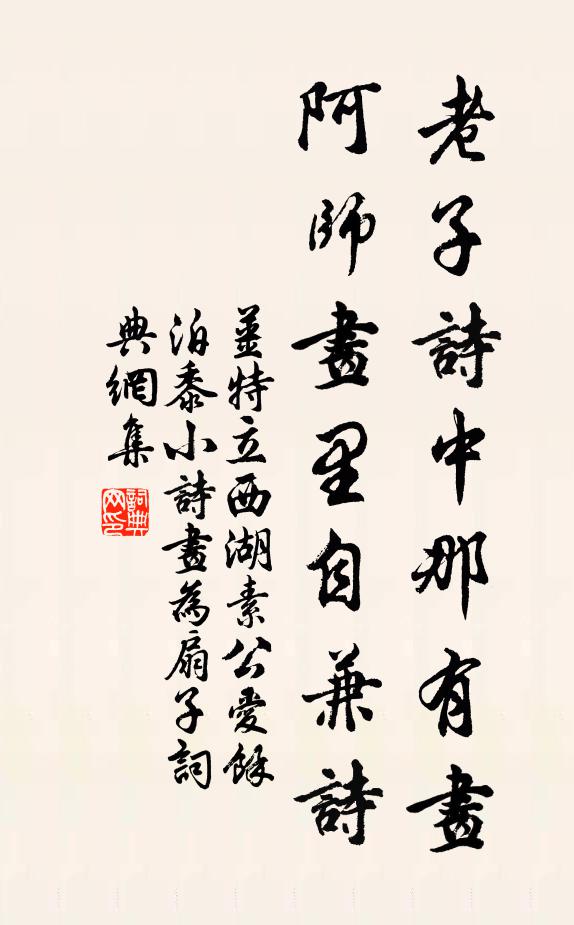 老子詩中那有畫
阿師畫里自兼詩
薑特立西湖素公愛餘
泊黍小詩畫為扇子詞
典網集
詞典网印